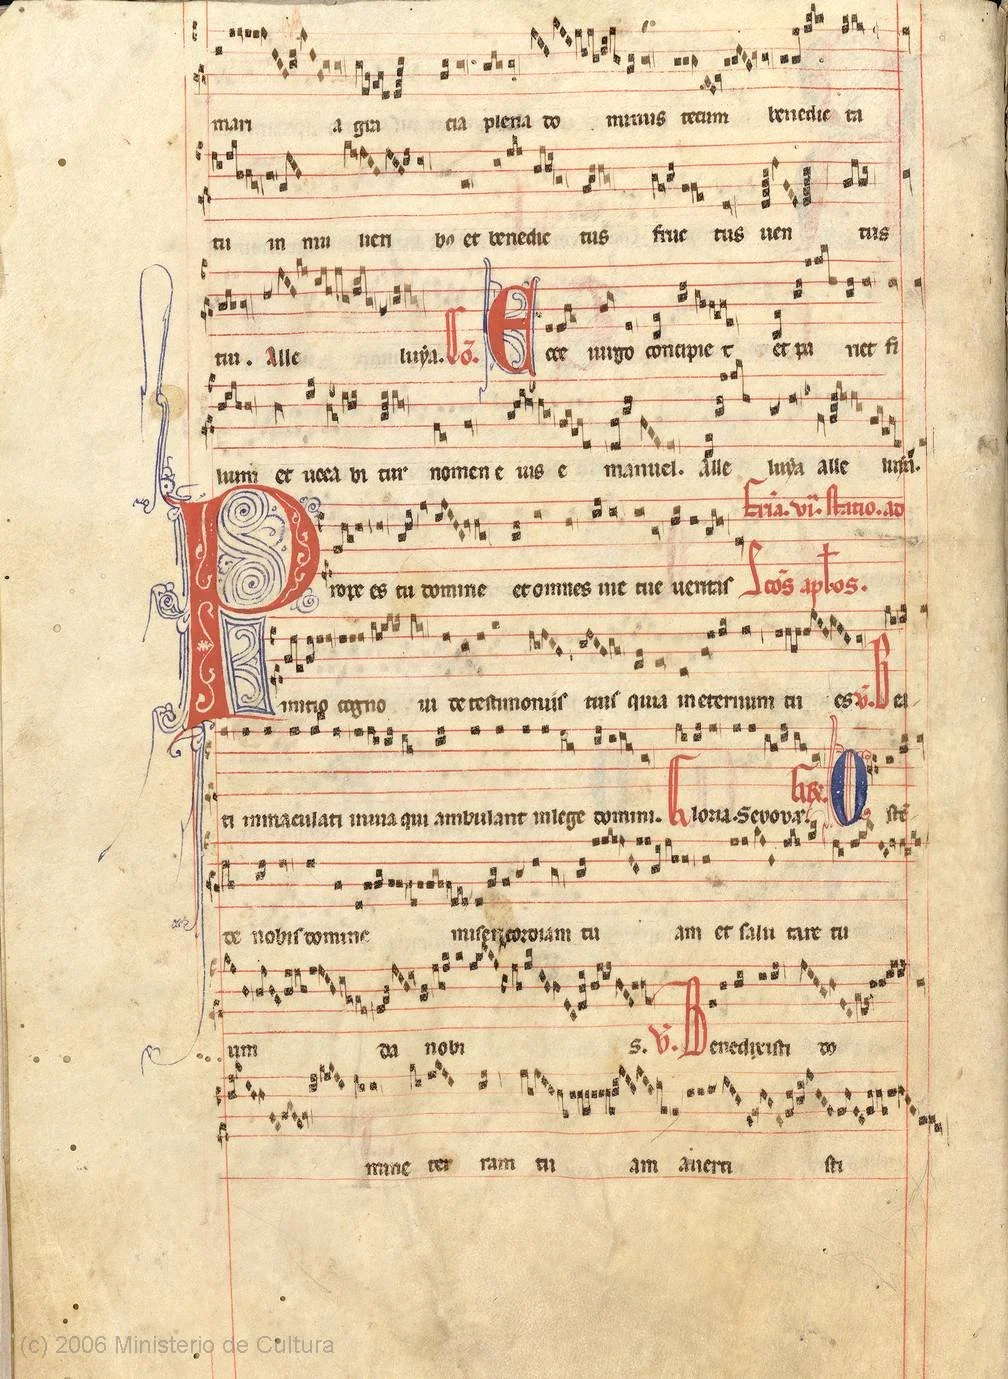 mari a gra cia plena do minus tecum benedic ta
tu in mu lieri bus et benedic tus fruc tus uen tris
tui. Alle luya. Cō. Ecce uirgo concipiet et pa riet fi
lium et uoca bi tur nomen e ius e manuel. Alle luya alle luya.
fr̄ia. vi. statio. ad
Prope es tu domine et omnes uie tue ueritas Scōs apłos.
initio cogno ui de testimoniis tuis quia in eternum tu es. v̄. Bea
ti inmaculati in uia qui ambulant in lege domini. Gloria. Seuouae. O sten
de nobis domine misericordiam tu am et salu tare tu
um da nobi s. v̄. Benedixisti do
mine ter ram tu am auerti sti
(c) 2006 Ministerio de Cultura